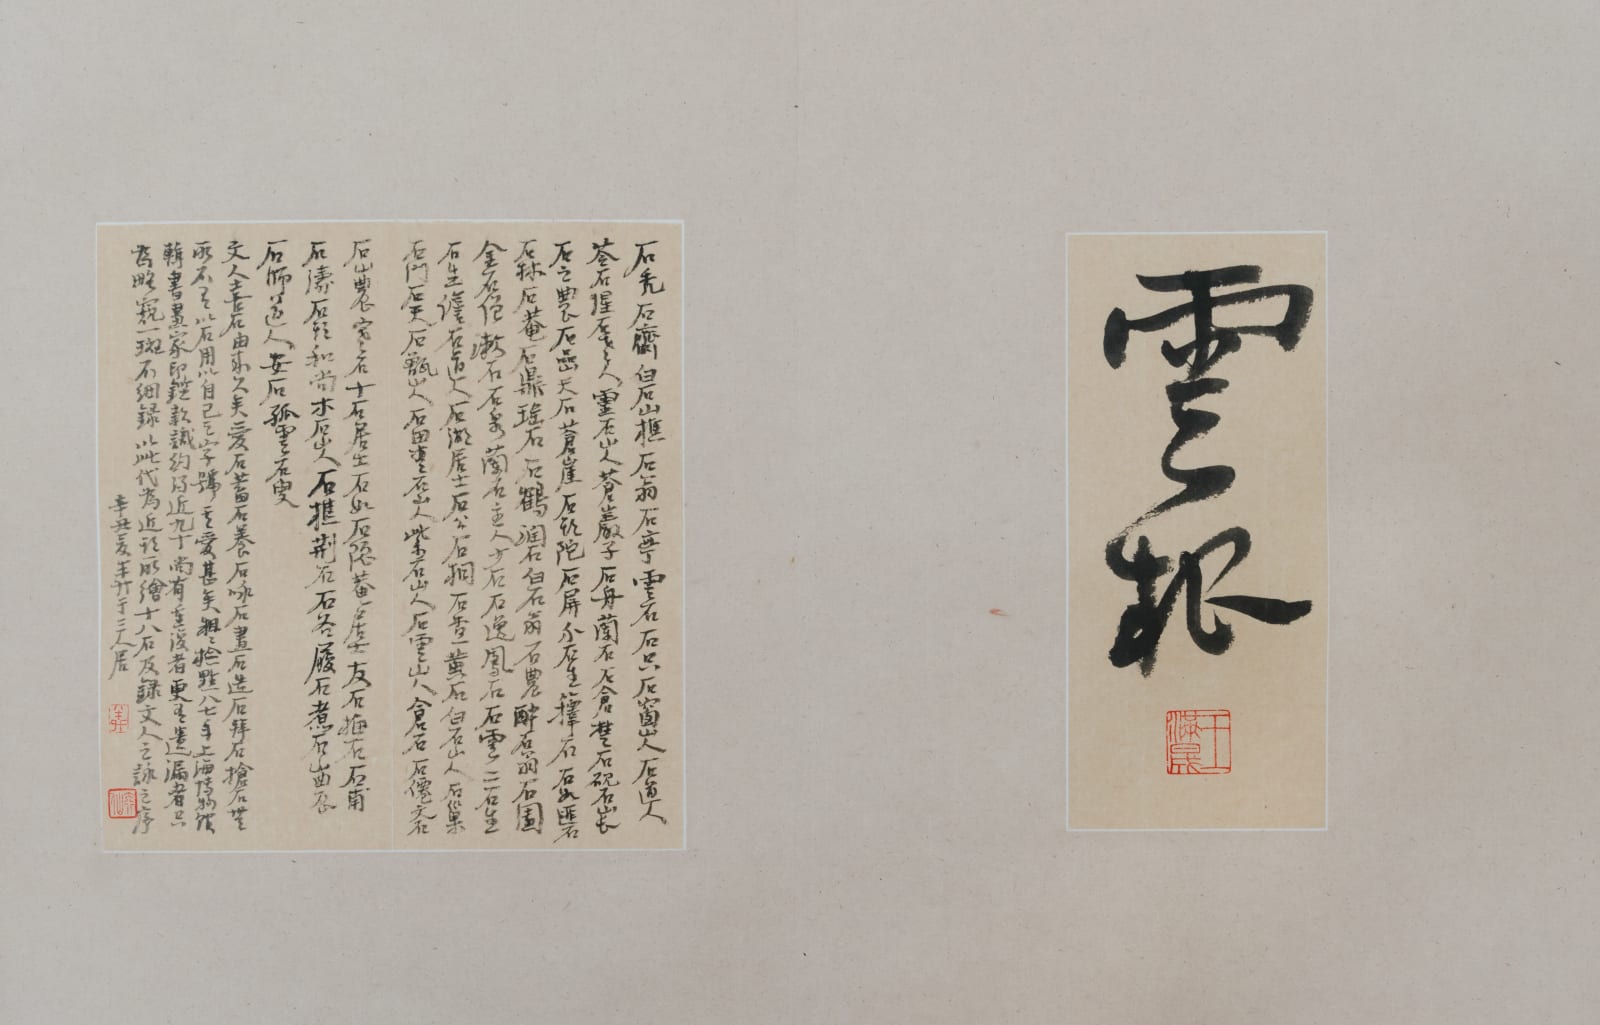 雲根
石禿 石齋 白石山樵 石翁 石亭 雲石 石只 石窗山人 石道人
苍石 石老人 靈石山人 蒼巖子 石舟 蘭石 石倉 楚石 硯石山長
石之農 石函 天石 蒼崖 石頭陀 石屏 介石生 擇石 石如 匪石
石林 石菴 石鼎 瑤石 石鶴 潤石 白石翁 石農 醉石 石翁 石園
金石僧 漱石 石泉 蘭石主人 少石 石逸 鳳石 石雲 二石生
石生 石道人 石湖居士 石公 石桐 石壺 黃石 白石山人 石巢
石門 石天 石瓿山人 石田 石山人 紫石山人 石雲山人 倉石 石僊
石山農 家石 十石居士 石如 石隱菴居士 友石 梅石 石甫
石濤 石頭和尚 木石山人 石樵 荆石 石谷 履石 煮石山農
石師道人 安石 孤雲石叟
文人喜石由來久矣 愛石蓄石養石咏石畫石造石拜石搶石無
所不至 以石用以自己之字號 其愛甚矣 粗粗檢點八七年上海博物館
輯書畫家印鑑款識約得近九十 尚有重複者 更有遺漏者 只
為略窺一斑 不細錄 以此代為近頃所繪十八石及錄文人之詠之序
辛丑夏 于二人居